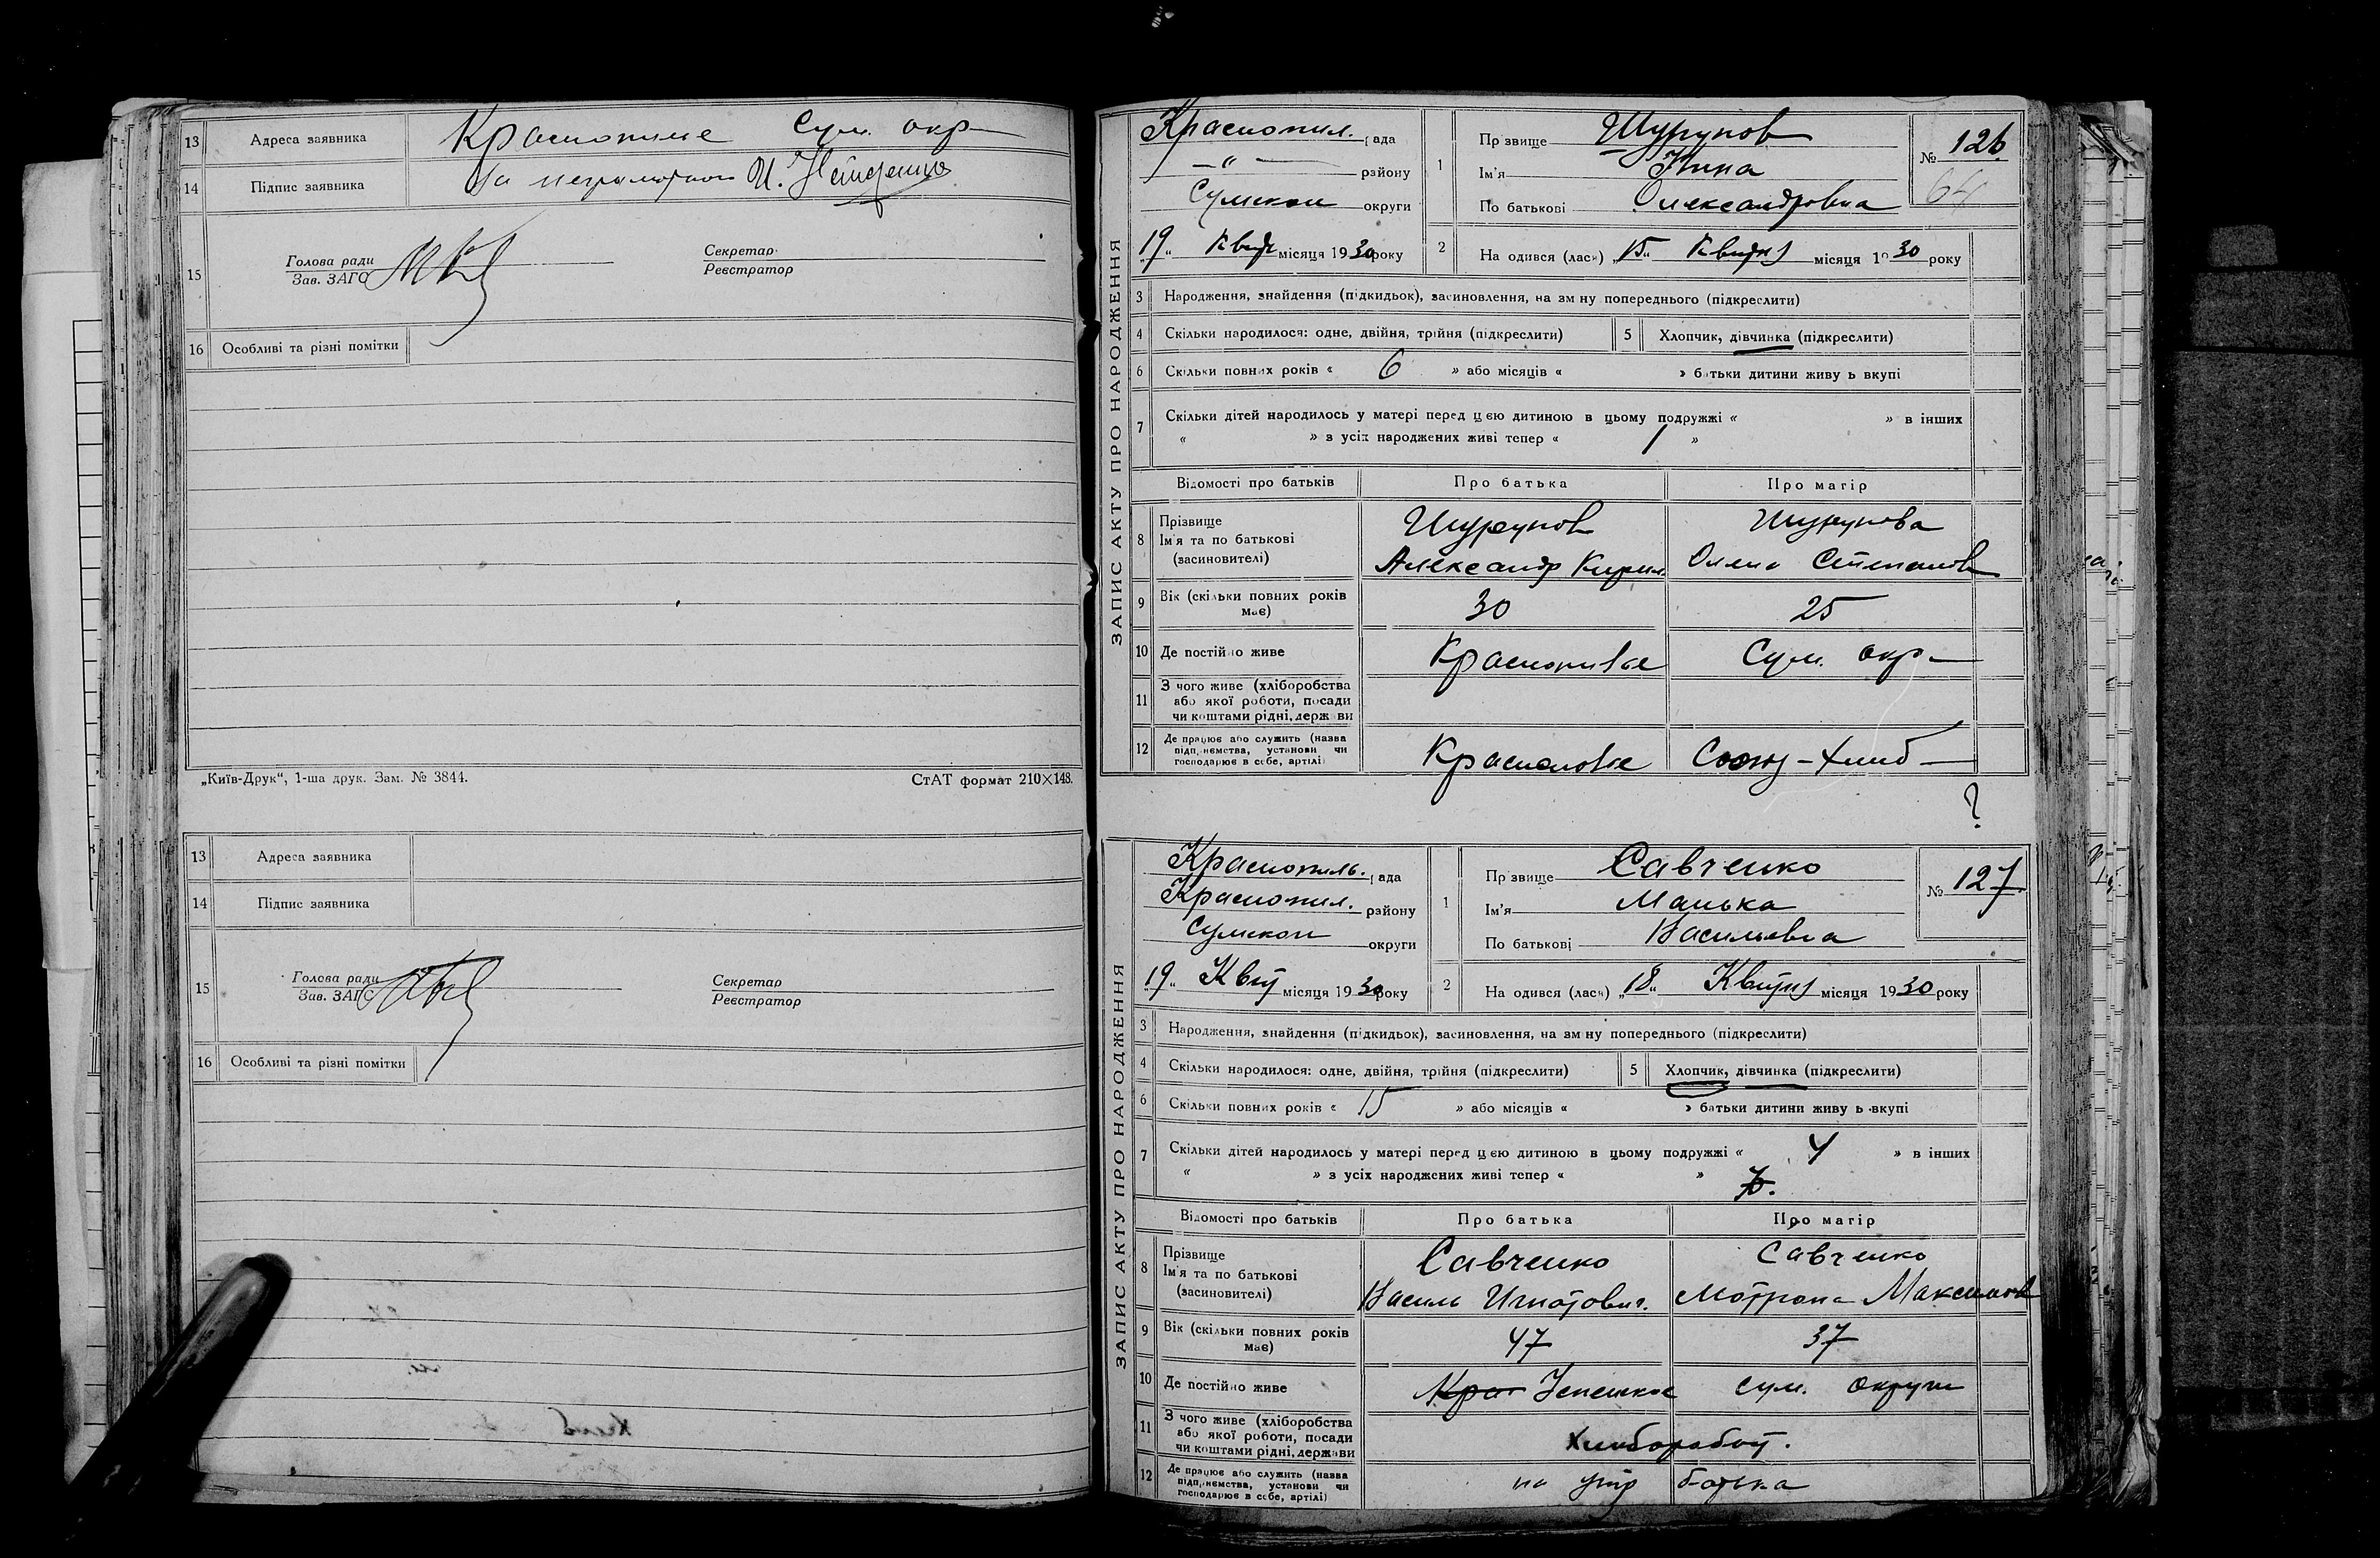 13 Адреса заявника Краснопилле Сум. окр
14 Підпис заявника За неграмотного И.
15 Голова ради Секретар
Зав. ЗАГС Реєстратор
16 Особливі та різні помітки
„Київ-Друк“, 1-ша друк. Зам. № 3844. СтАТ формат 210×148.
13 Адреса заявника
14 Підпис заявника
15 Голова ради Секретар
Зав. ЗАГС Реєстратор
16 Особливі та різні помітки
ЗАПИС АКТУ ПРО НАРОДЖЕННЯ
Краснопил. рада
—„— району
Сумской округи
„19„ Квіт місяця 1930 року
1 Прзвище Шурупов
Ім'я Нина
По батькові Олександровна
№ 126
64
2 На одився (лась) „15„ Квітня місяця 1930 року
3 Народження, знайдення (підкидьок), засиновлення, на зм ну попереднього (підкреслити)
4 Скільки народилося: одне, двійня, трійня (підкреслити) 5 Хлопчик, дівчинка (підкреслити)
6 Скільки повних років « 6 » або місяців « » батьки дитини живу ь вкупі
7 Скільки дітей народилось у матері перед цією дитиною в цьому подружжі « » в інших
« » з усіх народжених живі тепер « 1 »
Відомості про батьків Про батька Про матір
8 Прізвище Шурупов Шурупова
Ім'я та по батькові
(засиновителі) Александр Кирил. Олена Степанов
9 Вік (скільки повних років має) 30 25
10 Де постійно живе Краснопилье Сум. окр
11 З чого живе (хліборобства
або якої роботи, посади
чи коштами рідні, держави
12 Де працює або служить (назва
підприємства, установи чи
господарює в себе, артілі) Краснополье Союз-хлиб
?
ЗАПИС АКТУ ПРО НАРОДЖЕННЯ
Краснопиль. рада
Краснопил. району
Сумской округи
„19„ Квіт місяця 1930 року
1 Прзвище Савченко
Ім'я Манька
По батькові Васильевна
№ 127
2 На одився (лась) „18„ Квітня місяця 1930 року
3 Народження, знайдення (підкидьок), засиновлення, на зм ну попереднього (підкреслити)
4 Скільки народилося: одне, двійня, трійня (підкреслити) 5 Хлопчик, дівчинка (підкреслити)
6 Скільки повних років « 15 » або місяців « » батьки дитини живу ь вкупі
7 Скільки дітей народилось у матері перед цією дитиною в цьому подружжі « 4 » в інших
« » з усіх народжених живі тепер « »
Відомості про батьків Про батька Про матір
8 Прізвище Савченко Савченко
Ім'я та по батькові
(засиновителі) Василь Игнатович. Мотрона Максимов
9 Вік (скільки повних років має) 47 37
10 Де постійно живе Сум. округи
11 З чого живе (хліборобства
або якої роботи, посади
чи коштами рідні, держави Хлиборобст.
12 Де працює або служить (назва
підприємства, установи чи
господарює в себе, артілі) на утр батька